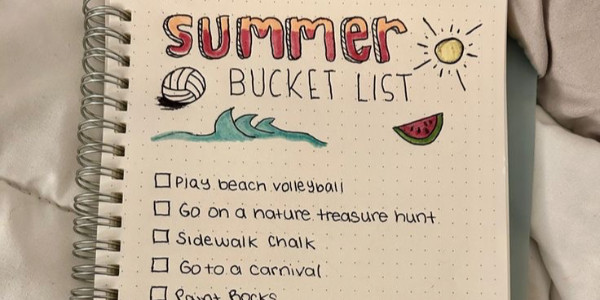 summer
BUCKET LIST
Play beach volleyball
Go on a nature treasure hunt
Sidewalk Chalk
Go to a carnival
Paint Rocks